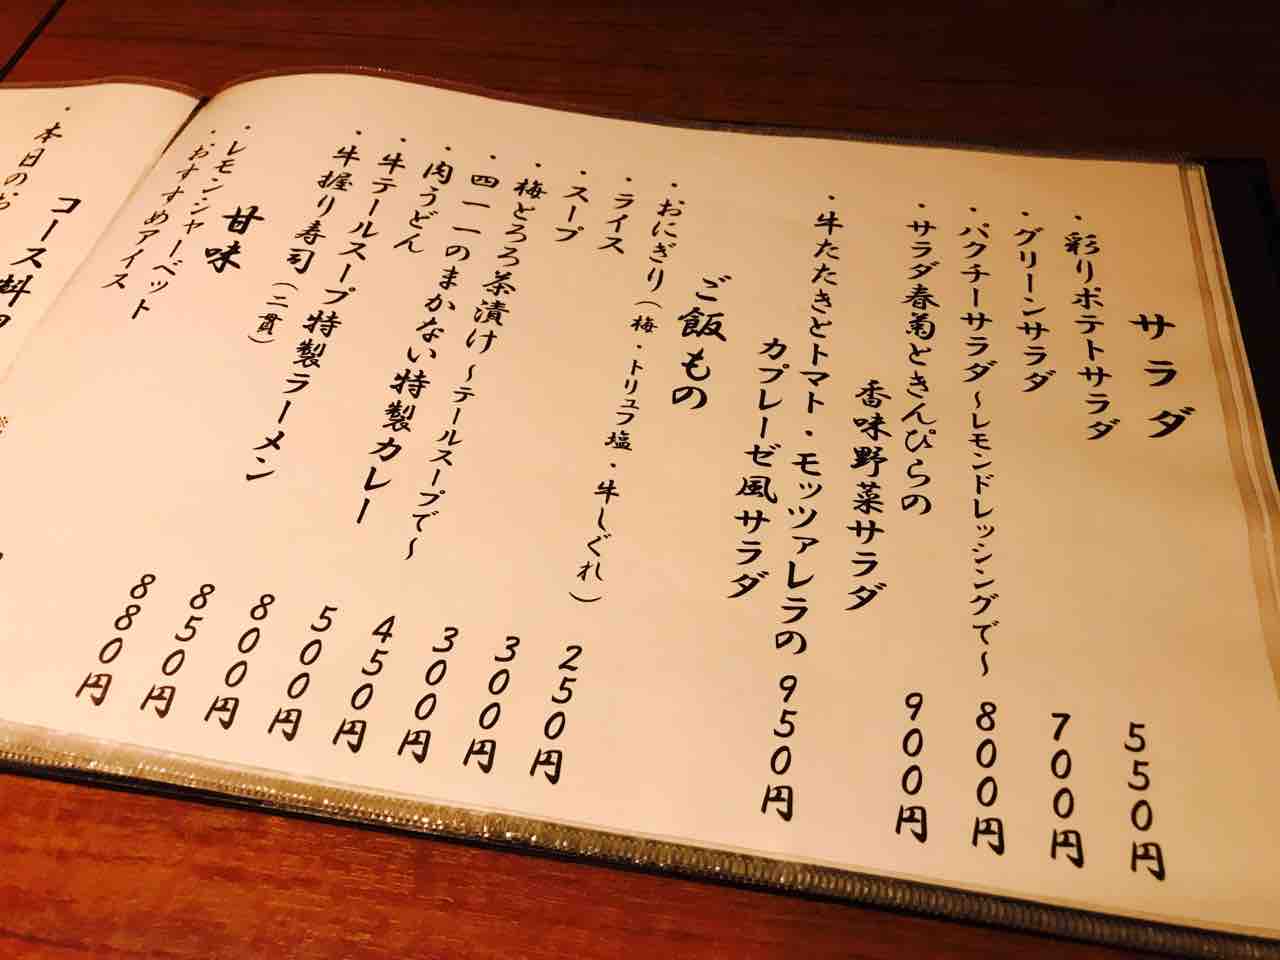 サラダ
・彩りポテトサラダ 550円
・グリーンサラダ 700円
・パクチーサラダ〜レモンドレッシングで〜 800円
・サラダ春菊ときんぴらの
香味野菜サラダ 900円
・牛たたきとトマト・モッツァレラの
カプレーゼ風サラダ 950円
ご飯もの
・おにぎり（梅・トリュフ塩・牛しぐれ） 250円
・ライス 300円
・スープ 300円
・梅とろろ茶漬け〜テールスープで〜 450円
・四一一のまかない特製カレー 500円
・肉うどん 800円
・牛テールスープ特製ラーメン 850円
・牛握り寿司（二貫） 880円
甘味
・レモンシャーベット
・おすすめアイス
コース料
・本日のお